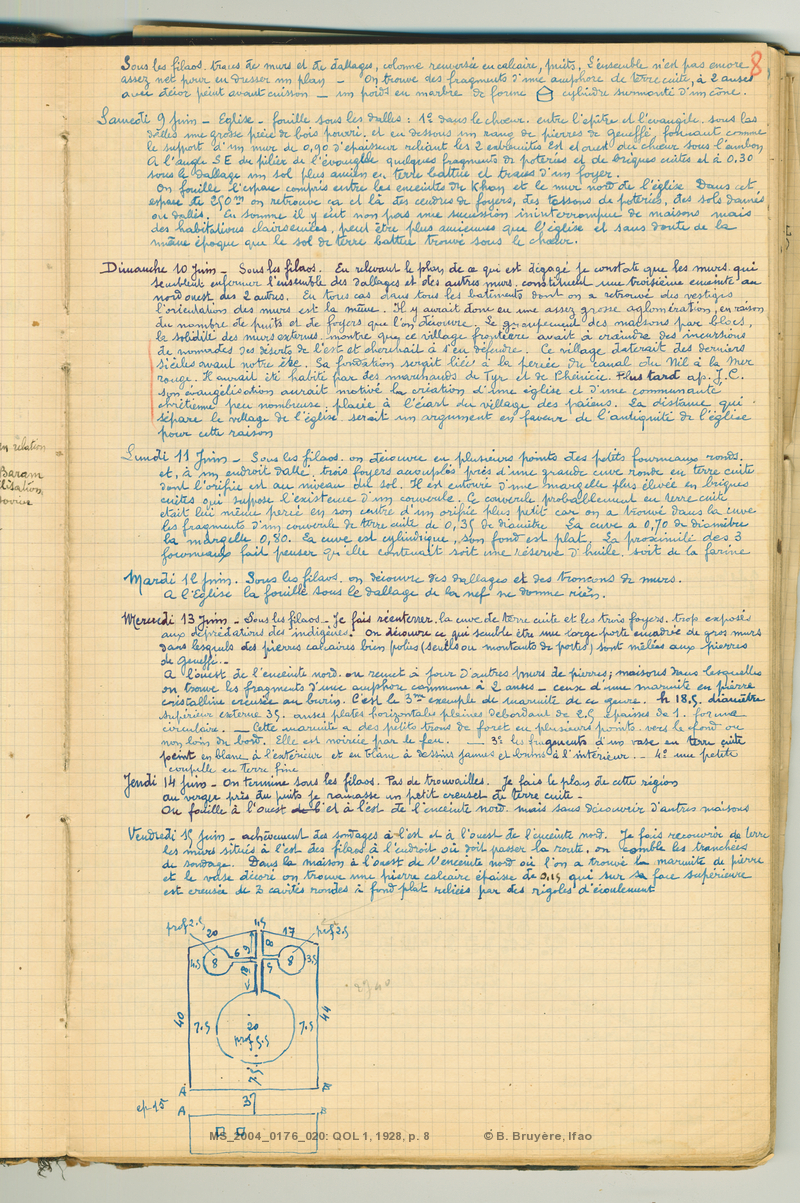 8
Sous les filaos. traces de murs et de dallages, colonne renversée en calcaire, puits, l'ensemble n'est pas encore
assez net pour en dresser un plan — On trouve des fragments d'une amphore de terre cuite, à 2 anses
avec décor peint avant cuisson — un poids en marbre de forme cylindre surmonté d'un cône.
Samedi 9 Juin — Eglise — fouille sous les dalles : 1º dans le chœur. entre l'épitre et l'évangile. sous les
dalles une grosse pièce de bois pourri. et en dessous un rang de pierres de Geneffé, formant comme
le support d'un mur de 0,90 d'épaisseur reliant les 2 extrémités Est et ouest du chœur sous l'ambon
A l'angle S.E du pilier de l'évangile quelques fragments de poteries et de briques cuites et à 0.30
sous le dallage un sol plus ancien en terre battue et traces d'un foyer.
On fouille l'espace compris entre les enceintes du Khan et le mur nord de l'église. Dans cet
espace de 250 m on retrouve ça et là des cendres de foyers, des tessons de poteries, des sols damés
ou dallés. En somme il y eut non pas une succession ininterrompue de maisons mais
des habitations clairsemées, peut être plus anciennes que l'église et sans doute de la
même époque que le sol de terre battue trouvé sous le chœur.
Dimanche 10 Juin — Sous les filaos. En relevant le plan de ce qui est dégagé je constate que les murs qui
semblent enfermer l'ensemble des dallages et des autres murs. constituent une troisième enceinte au
nord ouest des 2 autres. En tous cas dans tous les batiments dont on a retrouvé des vestiges
l'orientation des murs est la même. Il y aurait donc eu une assez grosse aglomération, en raison
du nombre de puits et de foyers que l'on découvre. Le groupement des maisons par blocs,
la solidité des murs externes. montre que ce village frontière avait à craindre des incursions
de nomades des déserts de l'est et cherchait à s'en défendre. Ce village daterait des derniers
siècles avant notre ère. Sa fondation serait liée à la percée du canal du Nil à la Mer
rouge. Il aurait été habité par des marchands de Tyr et de Phénicie. Plus tard ap. J.C.
son évangélisation aurait motivé la création d'une église et d'une communauté
chrétienne peu nombreuse. placée à l'écart du village des païens. La distance qui
sépare le village de l'église serait un argument en faveur de l'antiquité de l'église
pour cette raison
en relation
Baram
Lundi 11 Juin — Sous les filaos. on découvre en plusieurs points des petits fourneaux ronds.
et, à un endroit dallé, trois foyers accouplés près d'une grande cuve ronde en terre cuite
dont l'orifice est au niveau du sol. Il est entouré d'une margelle plus élevée en briques
cuites qui suppose l'existence d'un couvercle. Ce couvercle probablement en terre cuite
était lui même percé en son centre d'un orifice plus petit car on a trouvé dans la cuve
les fragments d'un couvercle de terre cuite de 0,35 de diamètre. La cuve a 0,70 de diamètre
la margelle 0,80. La cuve est cylindrique, son fond est plat. La proximité des 3
fourneaux fait penser qu'elle contenait soit une réserve d'huile. soit de la farine
Mardi 12 Juin. Sous les filaos. on découvre des dallages et des tronçons de murs.
A l'Eglise la fouille sous le dallage de la nef ne donne rien.
Mercredi 13 Juin — Sous les filaos — Je fais réenterrer. la cuve de terre cuite et les trois foyers. trop exposés
aux déprédations des indigènes. On découvre ce qui semble être une large porte encadrée de gros murs
dans lesquels des pierres calcaires bien polies (seuils ou montants de portes) sont mêlées aux pierres
de Geneffé. —
A l'ouest de l'enceinte nord. on remet à jour d'autres murs de pierres; maisons dans lesquelles
on trouve les fragments d'une amphore commune à 2 anses — ceux d'une marmite en pierre
cristalline creusée au burin. C'est le 3me exemple de marmite de ce genre. h 18.5. diamètre
supérieur externe 35. anses plates horizontales pleines débordant de 2.5 épaisses de 1. forme
circulaire. — Cette marmite a des petits trous de foret en plusieurs points. vers le fond ou
non loin du bord. Elle est noircie par le feu. — 3º les fragments d'un vase en terre cuite
peint en blanc à l'extérieur et en blanc à dessins jaunes et bruns à l'intérieur. — 4º une petite
coupelle en terre fine
Jeudi 14 Juin — On termine sous les filaos. Pas de trouvailles. Je fais le plan de cette région
au verger près du puits je ramasse un petit creuset de terre cuite —
On fouille à l'ouest et à l'est de l'enceinte nord. mais sans découvrir d'autres maisons
Vendredi 15 Juin — achèvement des sondages à l'est et à l'ouest de l'enceinte nord. Je fais recouvrir de terre
les murs situés à l'est des filaos à l'endroit où doit passer la route. on comble les tranchées
de sondage. Dans la maison à l'ouest de l'enceinte nord où l'on a trouvé la marmite de pierre
et le vase décoré on trouve une pierre calcaire épaisse de 0,15 qui sur sa face supérieure
est creusée de 3 cavités rondes à fond plat reliées par des rigoles d'écoulement
prof 2.5 20 1.5 17 prof 2.5
4.5 8 6 8 5 8 3.5
40 7.5 20 7.5 44
prof 5.5
7.5
A B
37
ep 15 A B
MS_2004_0176_020: QOL 1, 1928, p. 8 © B. Bruyère, Ifao